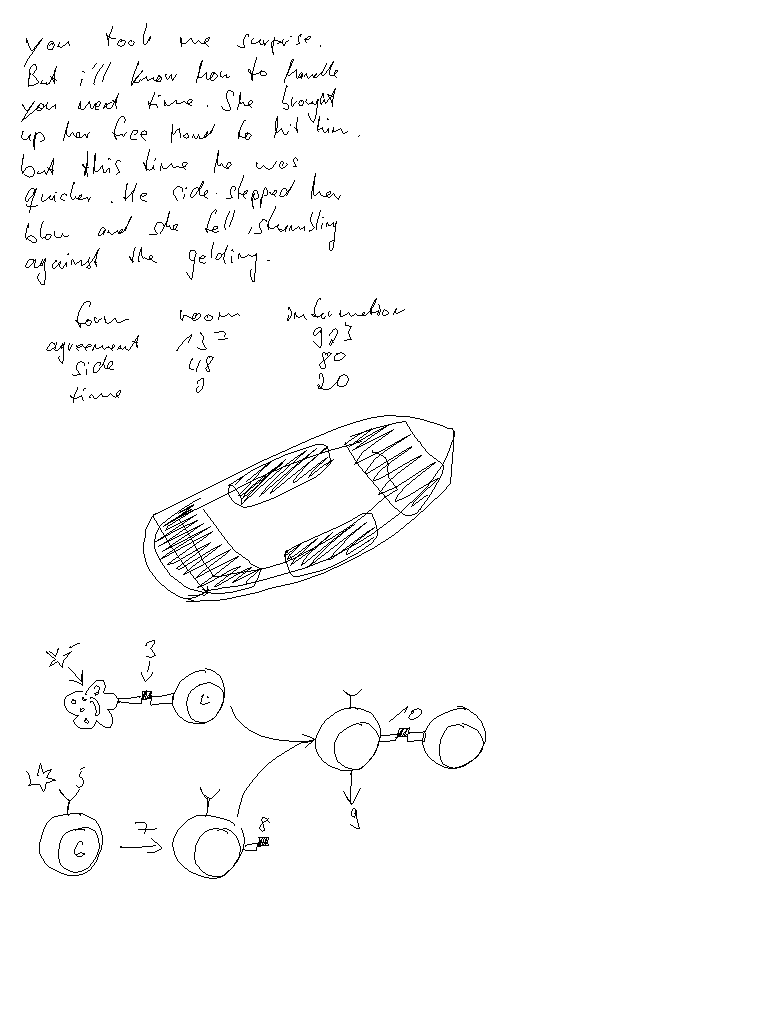 you took me surprise.
But i'll know how to handle
you next time. She brought
up her free hand to hit him.
but this time he was
quicker. He side-stepped her
blow and she fell, stumbling
against the gelding.
form room information
agreement 137 923
side 48 80
time 2 20
3
10
5
6
7
8
9